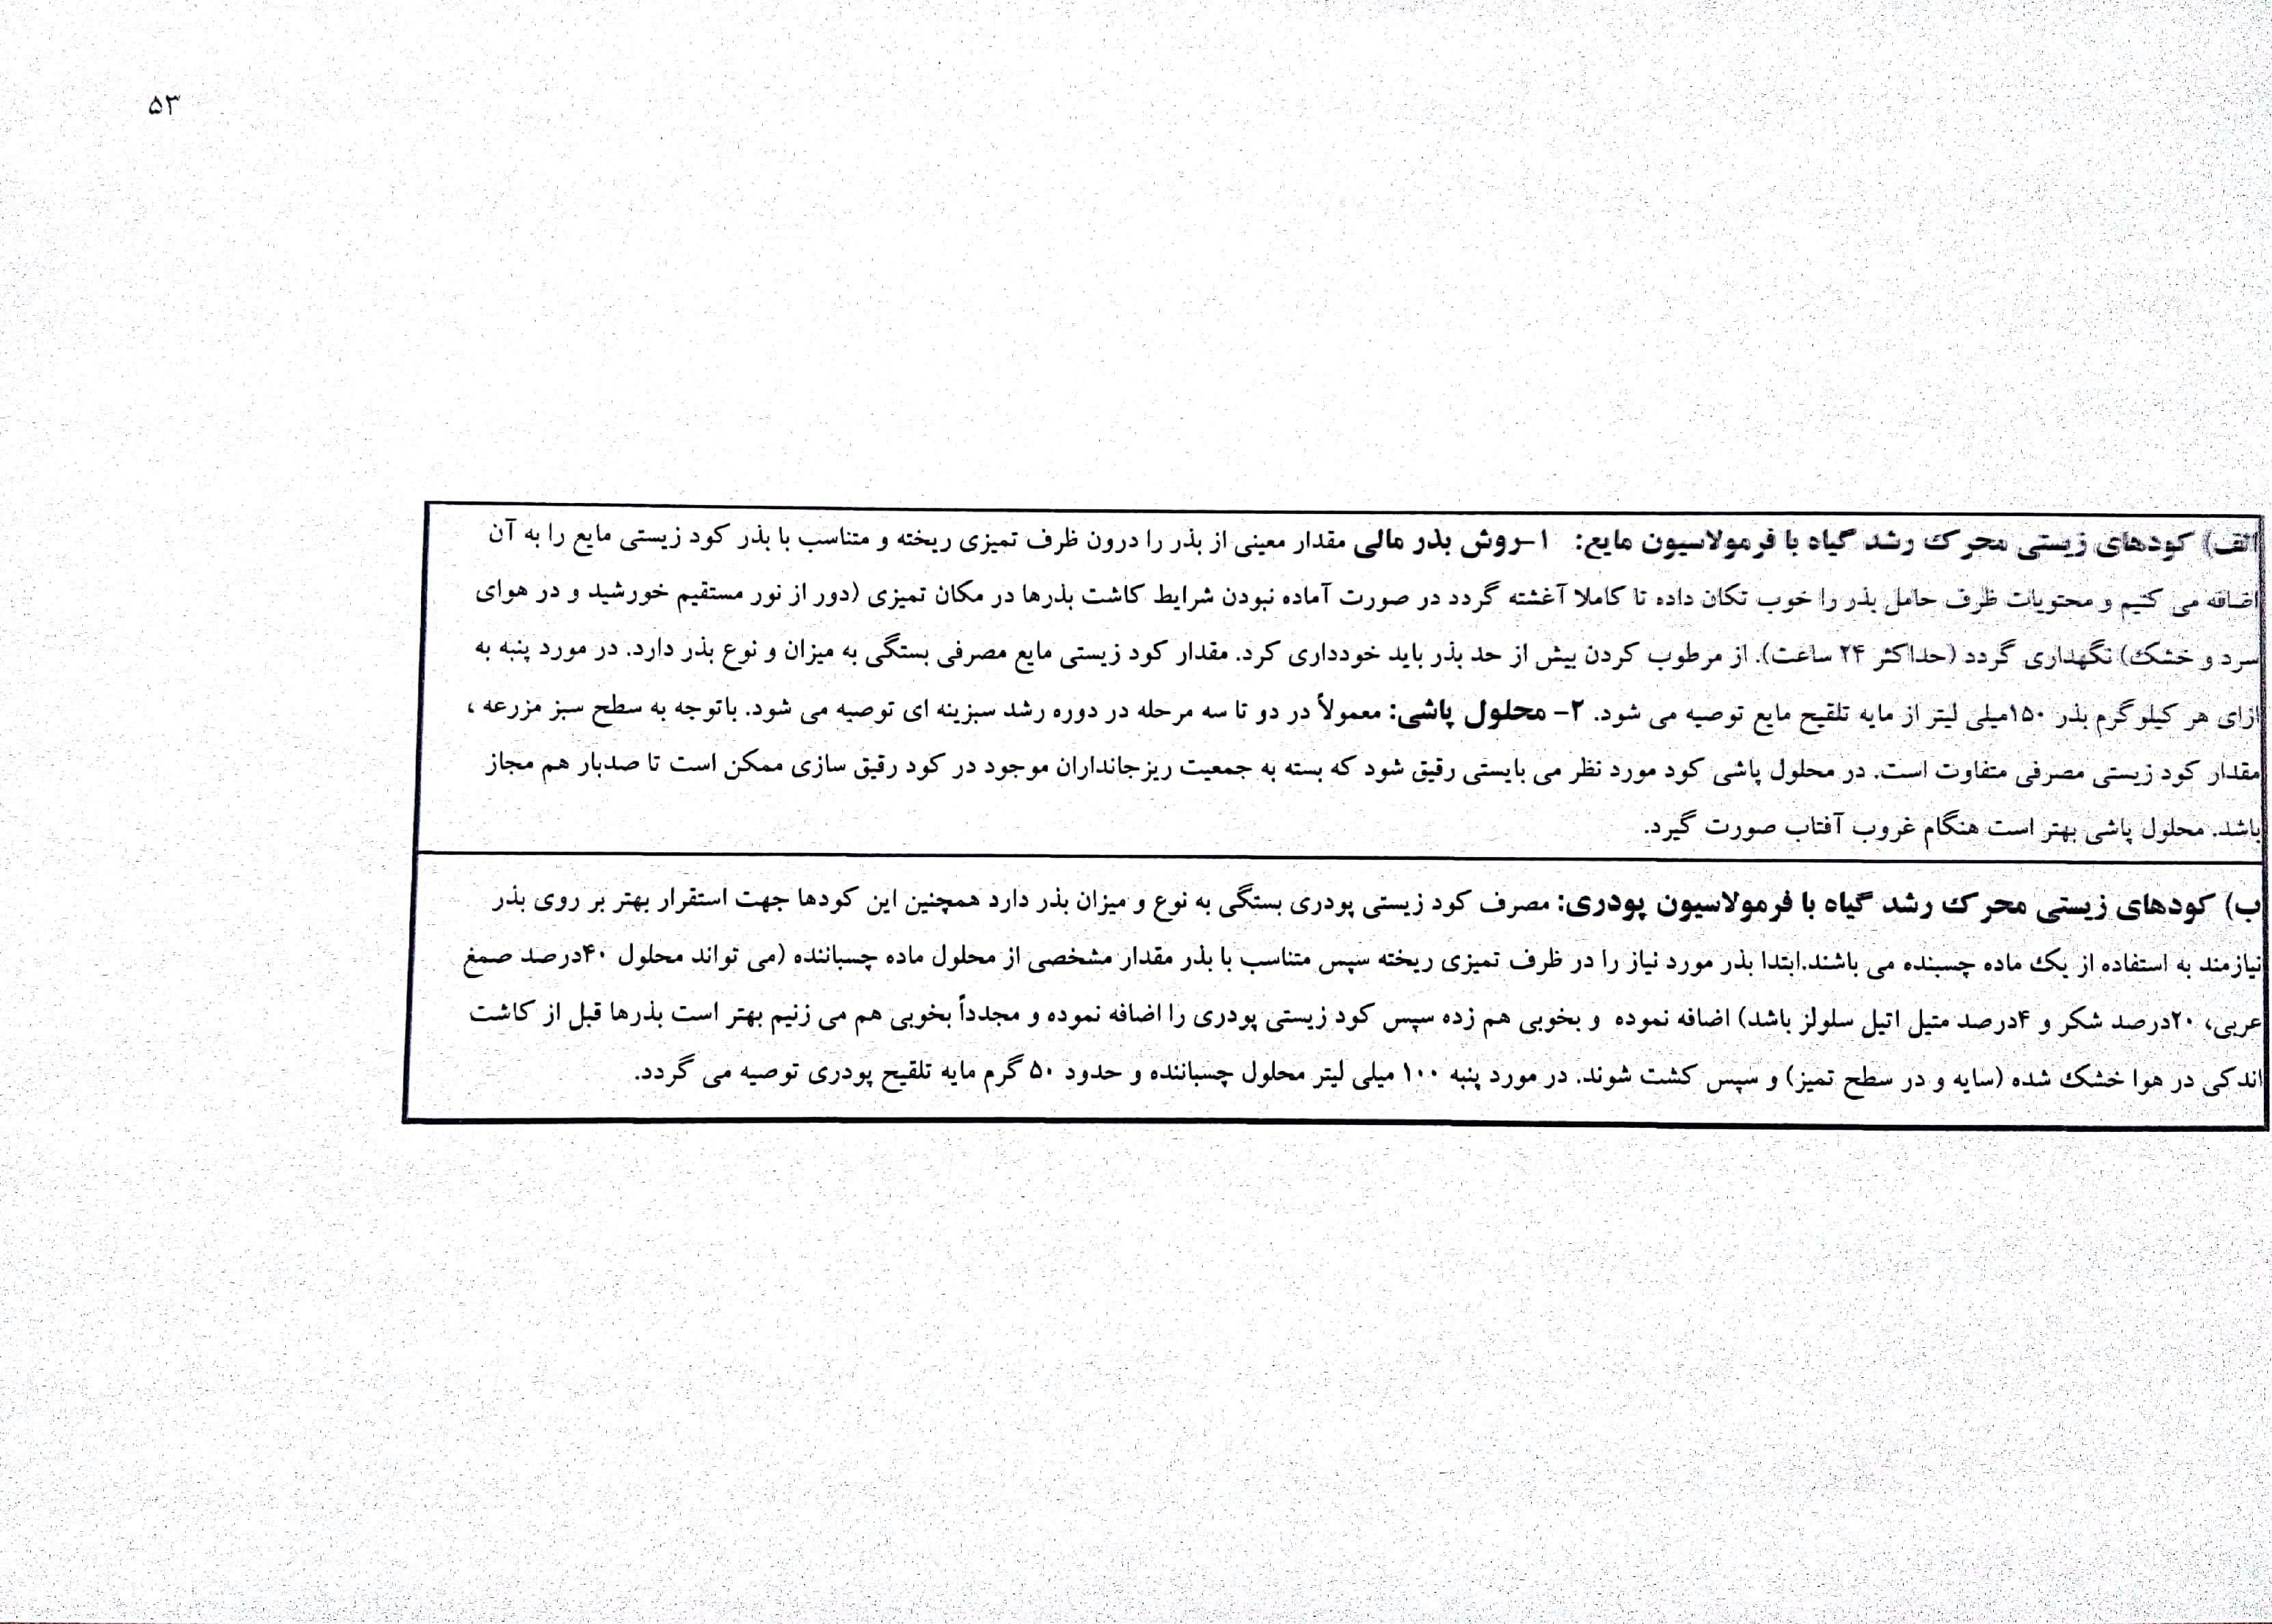 ۵۳
الف) کودهای زیستی محرک رشد گیاه با فرمولاسیون مایع: ۱-روش بذر مالی مقدار معینی از بذر را درون ظرف تمیزی ریخته و متناسب با بذر کود زیستی مایع را به آن
اضافه می کنیم و محتویات ظرف حامل بذر را خوب تکان داده تا کاملا آغشته گردد در صورت آماده نبودن شرایط کاشت بذرها در مکان تمیزی (دور از نور مستقیم خورشید و در هوای
سرد و خشک) نگهداری گردد (حداکثر ۲۴ ساعت). از مرطوب کردن بیش از حد بذر باید خودداری کرد. مقدار کود زیستی مایع مصرفی بستگی به میزان و نوع بذر دارد. در مورد پنبه به
ازای هر کیلوگرم بذر ۱۵۰میلی لیتر از مایه تلقیح مایع توصیه می شود. ۲- محلول پاشی: معمولاً در دو تا سه مرحله در دوره رشد سبزینه ای توصیه می شود. باتوجه به سطح سبز مزرعه ،
مقدار کود زیستی مصرفی متفاوت است. در محلول پاشی کود مورد نظر می بایستی رقیق شود که بسته به جمعیت ریزجانداران موجود در کود رقیق سازی ممکن است تا صدبار هم مجاز
باشد. محلول پاشی بهتر است هنگام غروب آفتاب صورت گیرد.
ب) کودهای زیستی محرک رشد گیاه با فرمولاسیون پودری: مصرف کود زیستی پودری بستگی به نوع و میزان بذر دارد همچنین این کودها جهت استقرار بهتر بر روی بذر
نیازمند به استفاده از یک ماده چسبنده می باشند.ابتدا بذر مورد نیاز را در ظرف تمیزی ریخته سپس متناسب با بذر مقدار مشخصی از محلول ماده چسباننده (می تواند محلول ۴۰درصد صمغ
عربی، ۲۰درصد شکر و ۴درصد متیل اتیل سلولز باشد) اضافه نموده و بخوبی هم زده سپس کود زیستی پودری را اضافه نموده و مجدداً بخوبی هم می زنیم بهتر است بذرها قبل از کاشت
اندکی در هوا خشک شده (سایه و در سطح تمیز) و سپس کشت شوند. در مورد پنبه ۱۰۰ میلی لیتر محلول چسباننده و حدود ۵۰ گرم مایه تلقیح پودری توصیه می گردد.